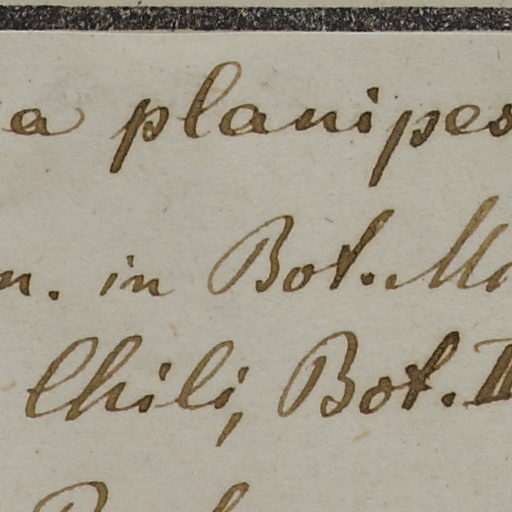 a planipes
n. in Bot. Ma
Chili, Bot. II